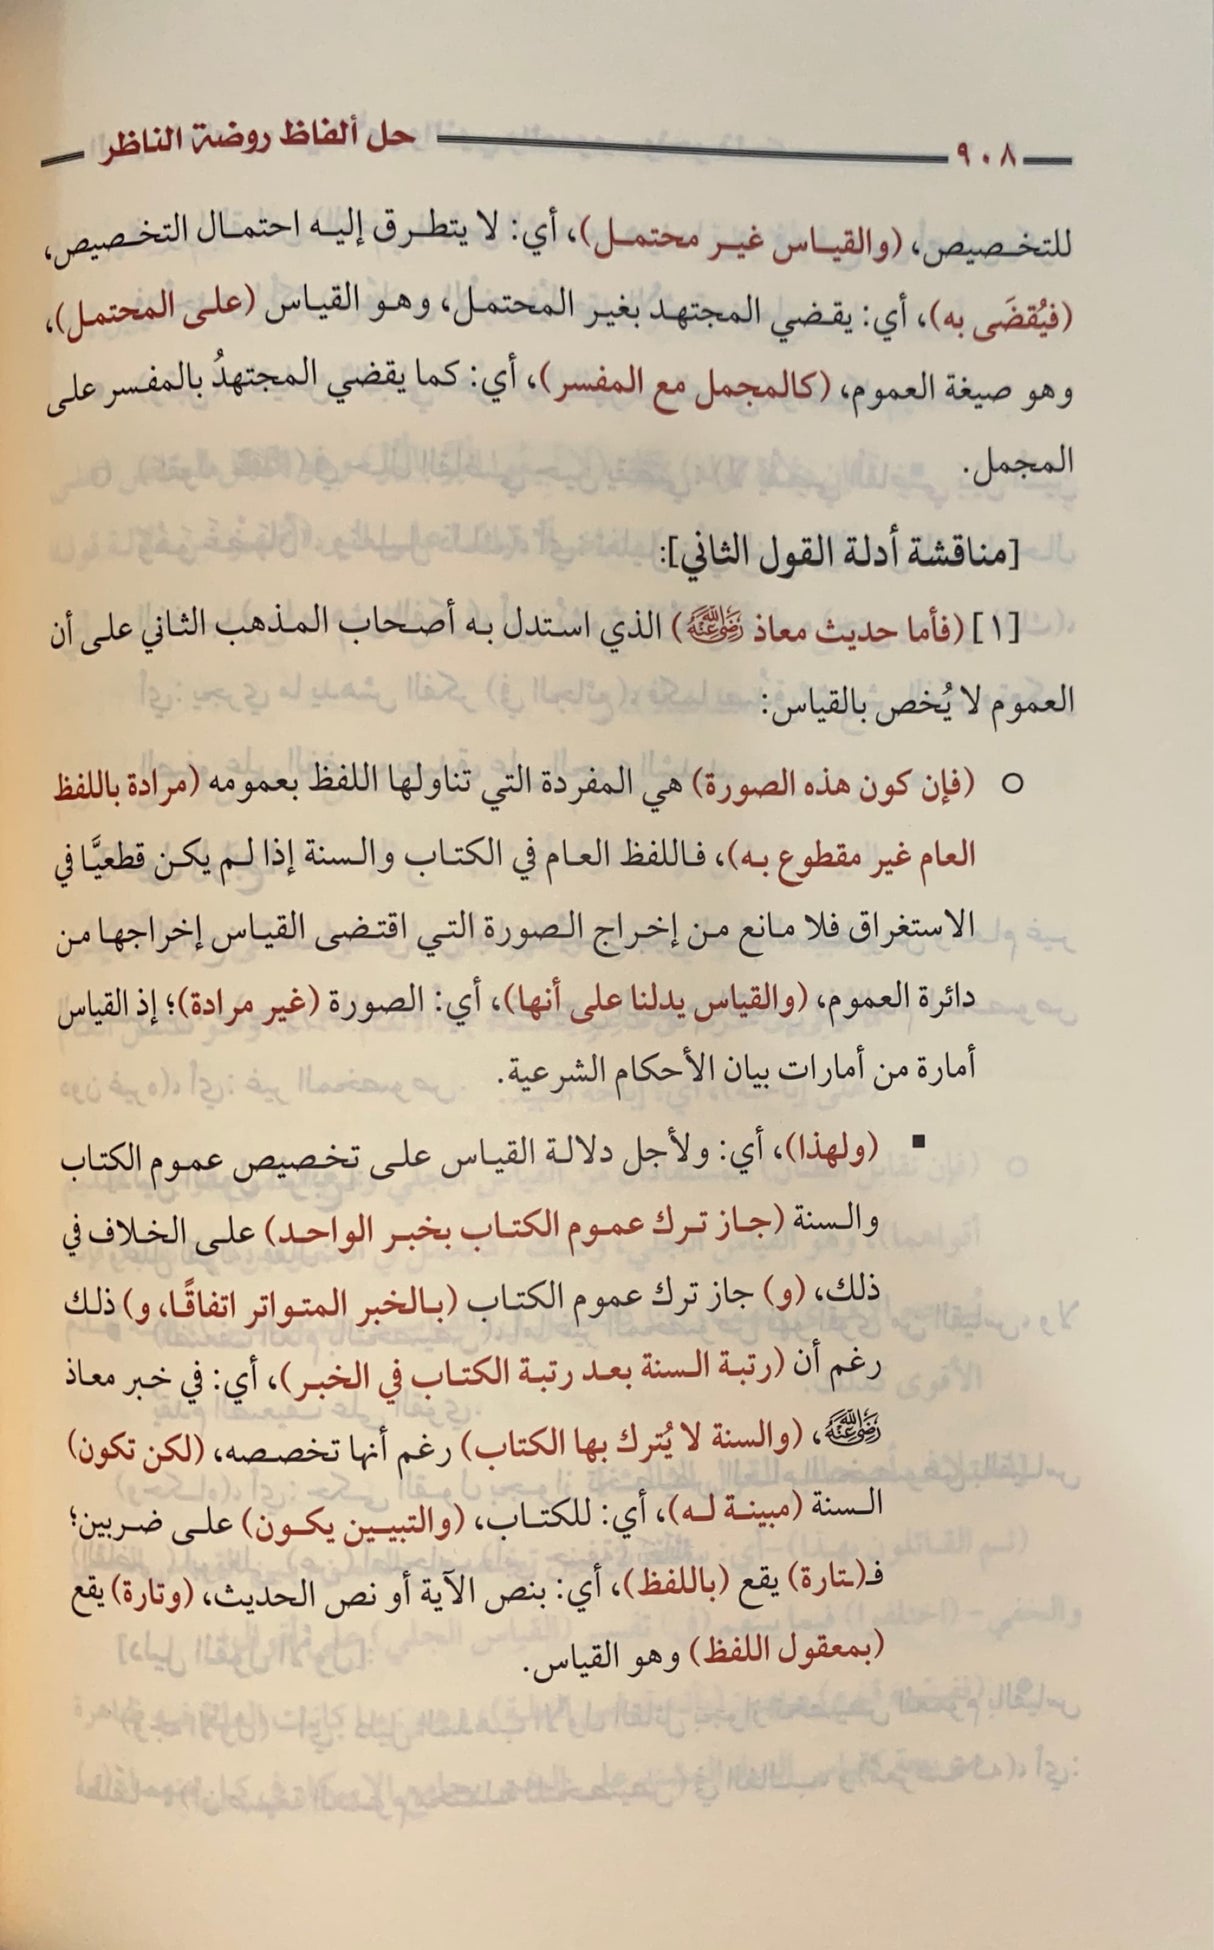 ٩٠٨ حل ألفاظ روضة الناظر
للتخصيص، (والقياس غير محتمل)، أي: لا يتطرق إليه احتمال التخصيص،
(فيُقضَى به)، أي: يقضي المجتهد بغير المحتمل، وهو القياس (على المحتمل)،
وهو صيغة العموم، (كالمجمل مع المفسر)، أي: كما يقضي المجتهدُ بالمفسر على
المجمل.
[مناقشة أدلة القول الثاني]:
[١] (فأما حديث معاذ رضي الله عنه) الذي استدل به أصحاب المذهب الثاني على أن
العموم لا يُخص بالقياس:
○ (فإن كون هذه الصورة) هي المفردة التي تناولها اللفظ بعمومه (مرادة باللفظ
العام غير مقطوع به)، فاللفظ العام في الكتاب والسنة إذا لم يكن قطعيًّا في
الاستغراق فلا مانع من إخراج الصورة التي اقتضى القياس إخراجها من
دائرة العموم، (والقياس يدلنا على أنها)، أي: الصورة (غير مرادة)؛ إذ القياس
أمارة من أمارات بيان الأحكام الشرعية.
▪ (ولهذا)، أي: ولأجل دلالة القياس على تخصيص عموم الكتاب
والسنة (جاز ترك عموم الكتاب بخبر الواحد) على الخلاف في
ذلك، (و) جاز ترك عموم الكتاب (بالخبر المتواتر اتفاقًا، و) ذلك
رغم أن (رتبة السنة بعد رتبة الكتاب في الخبر)، أي: في خبر معاذ
رضي الله عنه، (والسنة لا يُترك بها الكتاب) رغم أنها تخصصه، (لكن تكون)
السنة (مبينة له)، أي: للكتاب، (والتبيين يكون) على ضربين؛
فـ(ـتارة) يقع (باللفظ)، أي: بنص الآية أو نص الحديث، (وتارة) يقع
(بمعقول اللفظ) وهو القياس.